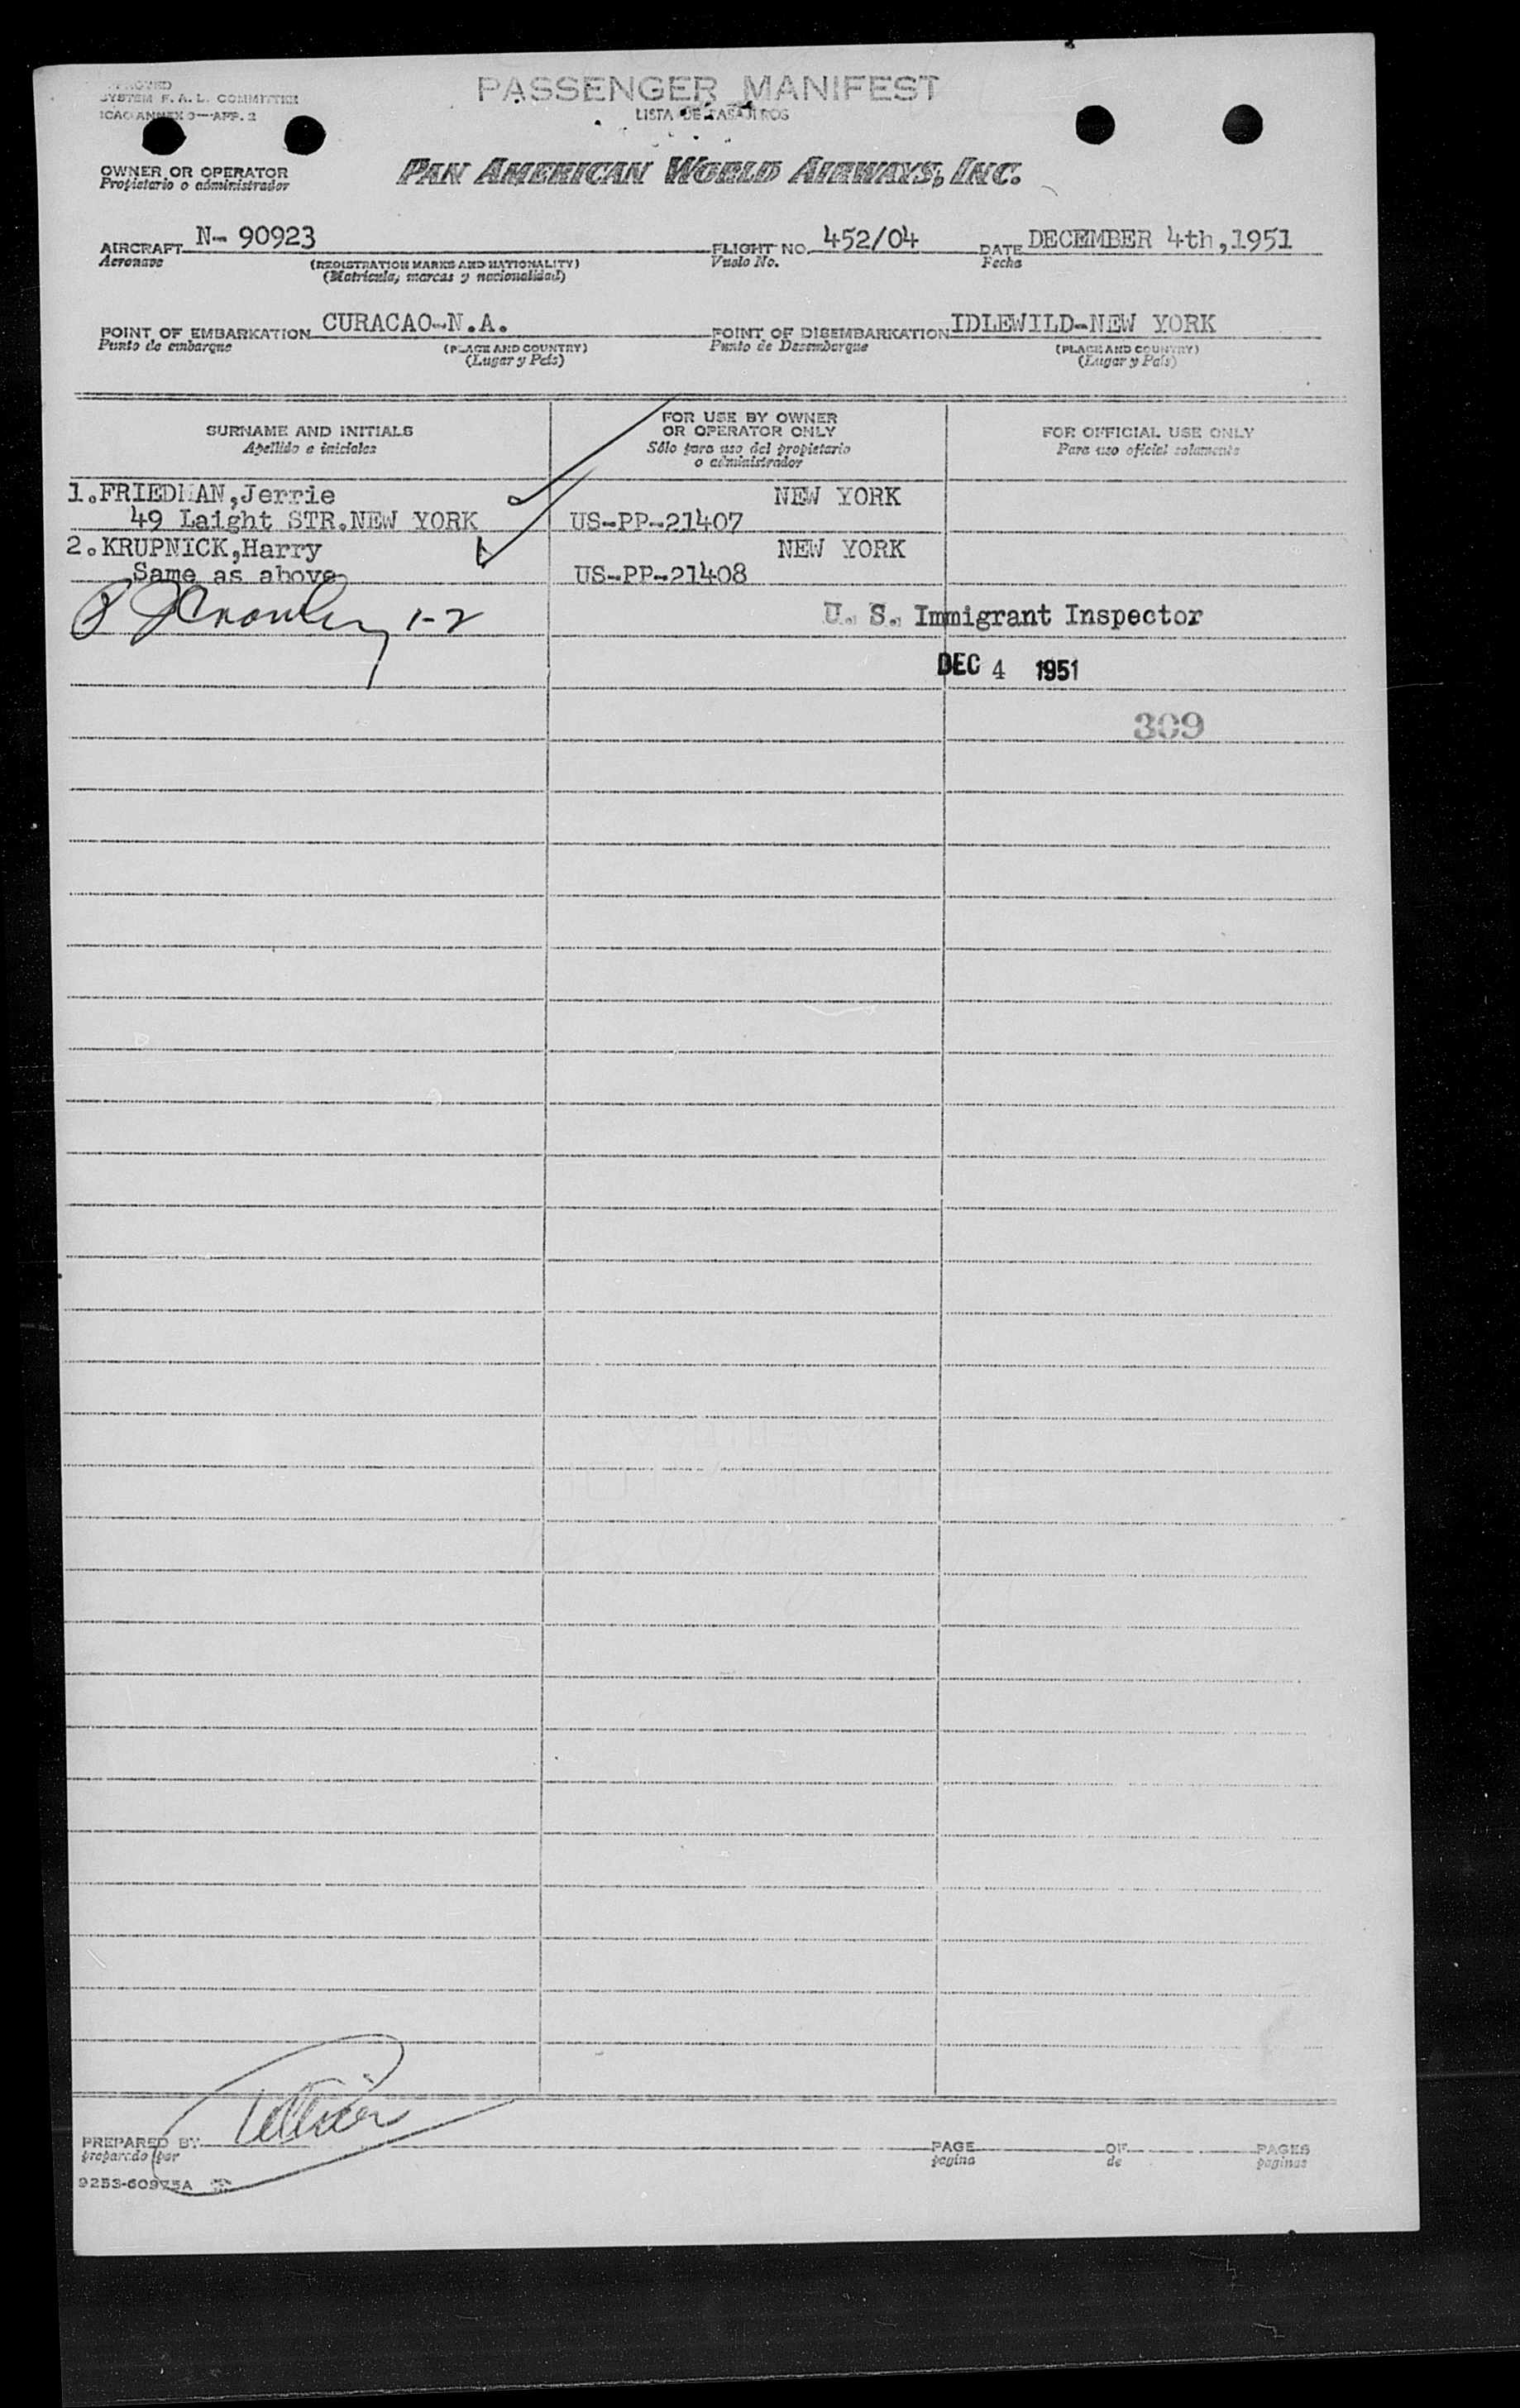 SYSTEM F. A. L. COMMITTEE
ICAO ANNEX 9—APP. 2
PASSENGER MANIFEST
LISTA DE PASAJEROS
OWNER OR OPERATOR
Propietario o administrador
PAN AMERICAN WORLD AIRWAYS, INC.
AIRCRAFT N- 90923 FLIGHT NO. 452/04 DATE DECEMBER 4th,1951
Aeronave (REGISTRATION MARKS AND NATIONALITY) Vuelo No. Fecha
(Matricula, marcas y nacionalidad)
POINT OF EMBARKATION CURACAO-N.A. POINT OF DISEMBARKATION IDLEWILD-NEW YORK
Punto de embarque (PLACE AND COUNTRY) Punto de Desembarque (PLACE AND COUNTRY)
(Lugar y País) (Lugar y País)
SURNAME AND INITIALS
Apellido e iniciales
FOR USE BY OWNER
OR OPERATOR ONLY
Sólo para uso del propietario
o administrador
FOR OFFICIAL USE ONLY
Para uso oficial solamente
1.FRIEDMAN,Jerrie NEW YORK
49 Laight STR.NEW YORK US-PP-21407
2.KRUPNICK,Harry NEW YORK
Same as above US-PP-21408
1-2 U. S. Immigrant Inspector
DEC 4 1951
309
PREPARED BY PAGE OF PAGES
preparado por pagina de paginas